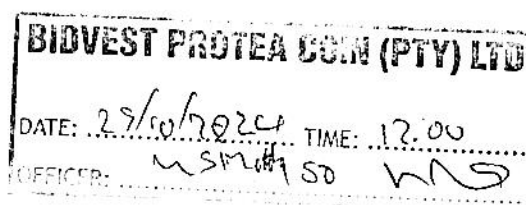 BIDVEST PROTEA COIN (PTY) LTD
DATE: 29/10/2024 TIME: 12:00
OFFICER: M Smith SO